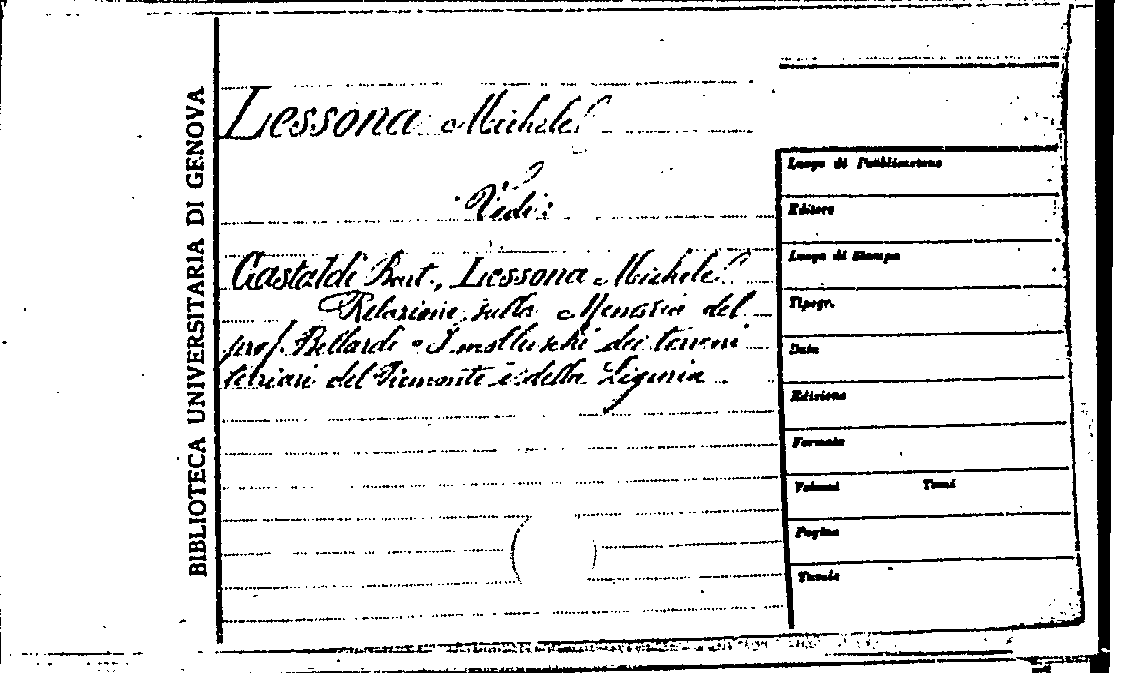 BIBLIOTECA UNIVERSITARIA DI GENOVA
Lessona Michele
Vedi:
Gastaldi Bart., Lessona Michele
Relazione sulla Memoria del
prof. Bellardi "I molluschi dei terreni
terziari del Piemonte e della Liguria
Luogo di Pubblicazione
Editore
Luogo di Stampa
Tipogr.
Data
Edizione
Formato
Volumi Tomi
Pagine
Tavole